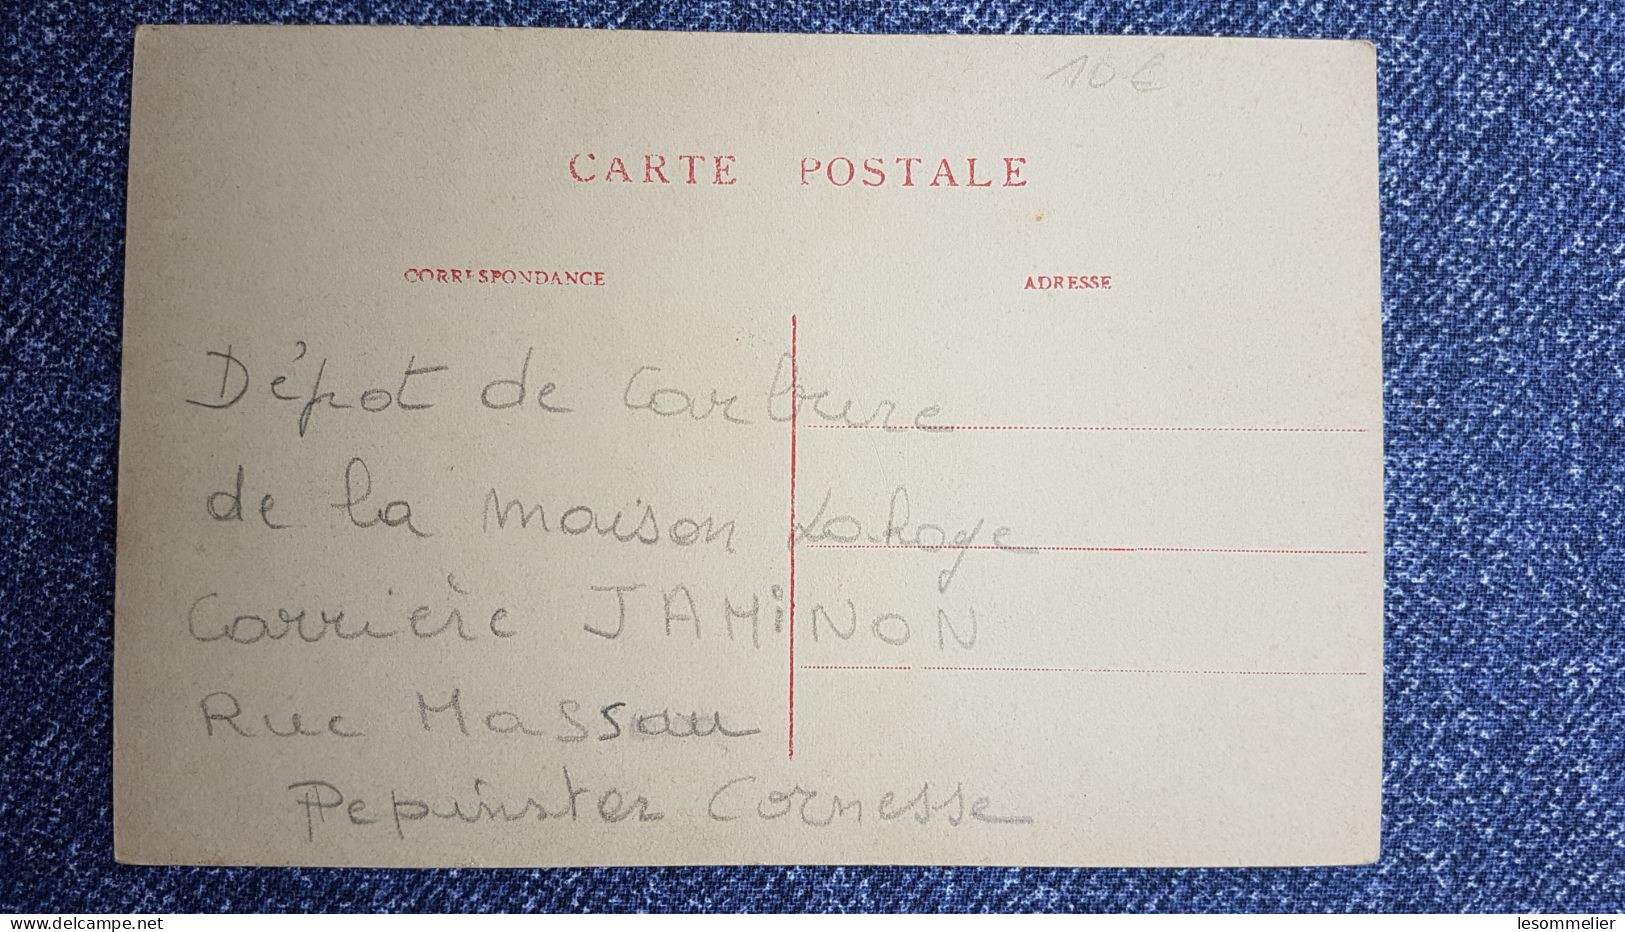 10 €
CARTE POSTALE
CORRESPONDANCE
ADRESSE
Dépot de Carbure
de la maison Lahaye
Carrière JAMiNON
Rue Massau
Pepinster Cornesse
www.delcampe.net
lesommelier